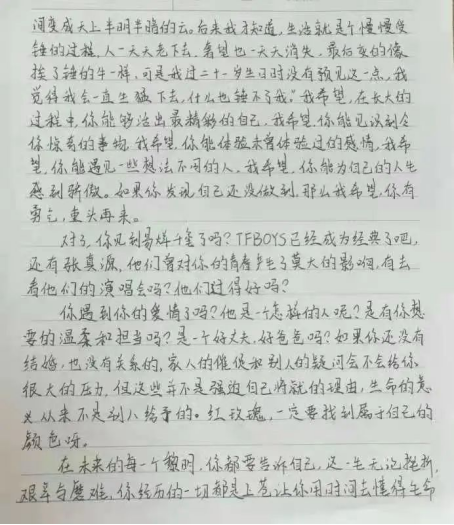 间变成天上半明半暗的云。后来我才知道，生活就是个慢慢受
锤的过程，人一天天老下去，奢望也一天天消失，最后变的像
挨了锤的牛一样，可是我过二十一岁生日时没有预见这一点，我
觉得我会一直生猛下去，什么也锤不了我。"我希望，在长大的
过程中，你能够活出最精彩的自己，我希望，你能见识到令
你惊奇的事物，我希望，你能体验未曾体验过的感情，我希
望，你能遇见一些想法不同的人，我希望，你能为自己的人生
感到骄傲。如果你发现自己还没做到，那么我希望，你有
勇气，重头再来。
对了，你见到易烊千玺了吗？TFBOYS已经成为经典了吧，
还有张真源，他们曾对你的青春产生了莫大的影响，有去
看他们的演唱会吗？他们过得好吗？
你遇到你的爱情了吗？他是一个怎样的人呢？是有你想
要的温柔和担当吗？是一个好丈夫，好爸爸吗？如果你还没有
结婚，也没有关系的，家人的催促和别人的疑问会不会给你
很大的压力，但这些并不是强迫自己将就的理由，生命的意
义从来不是别人给予的。红玫瑰，一定要找到属于自己的
颜色呀。
在未来的每一个黎明，你都要告诉自己，这一生无论挫折，
艰辛与磨难，你经历的一切都是上苍让你用时间去懂得生命